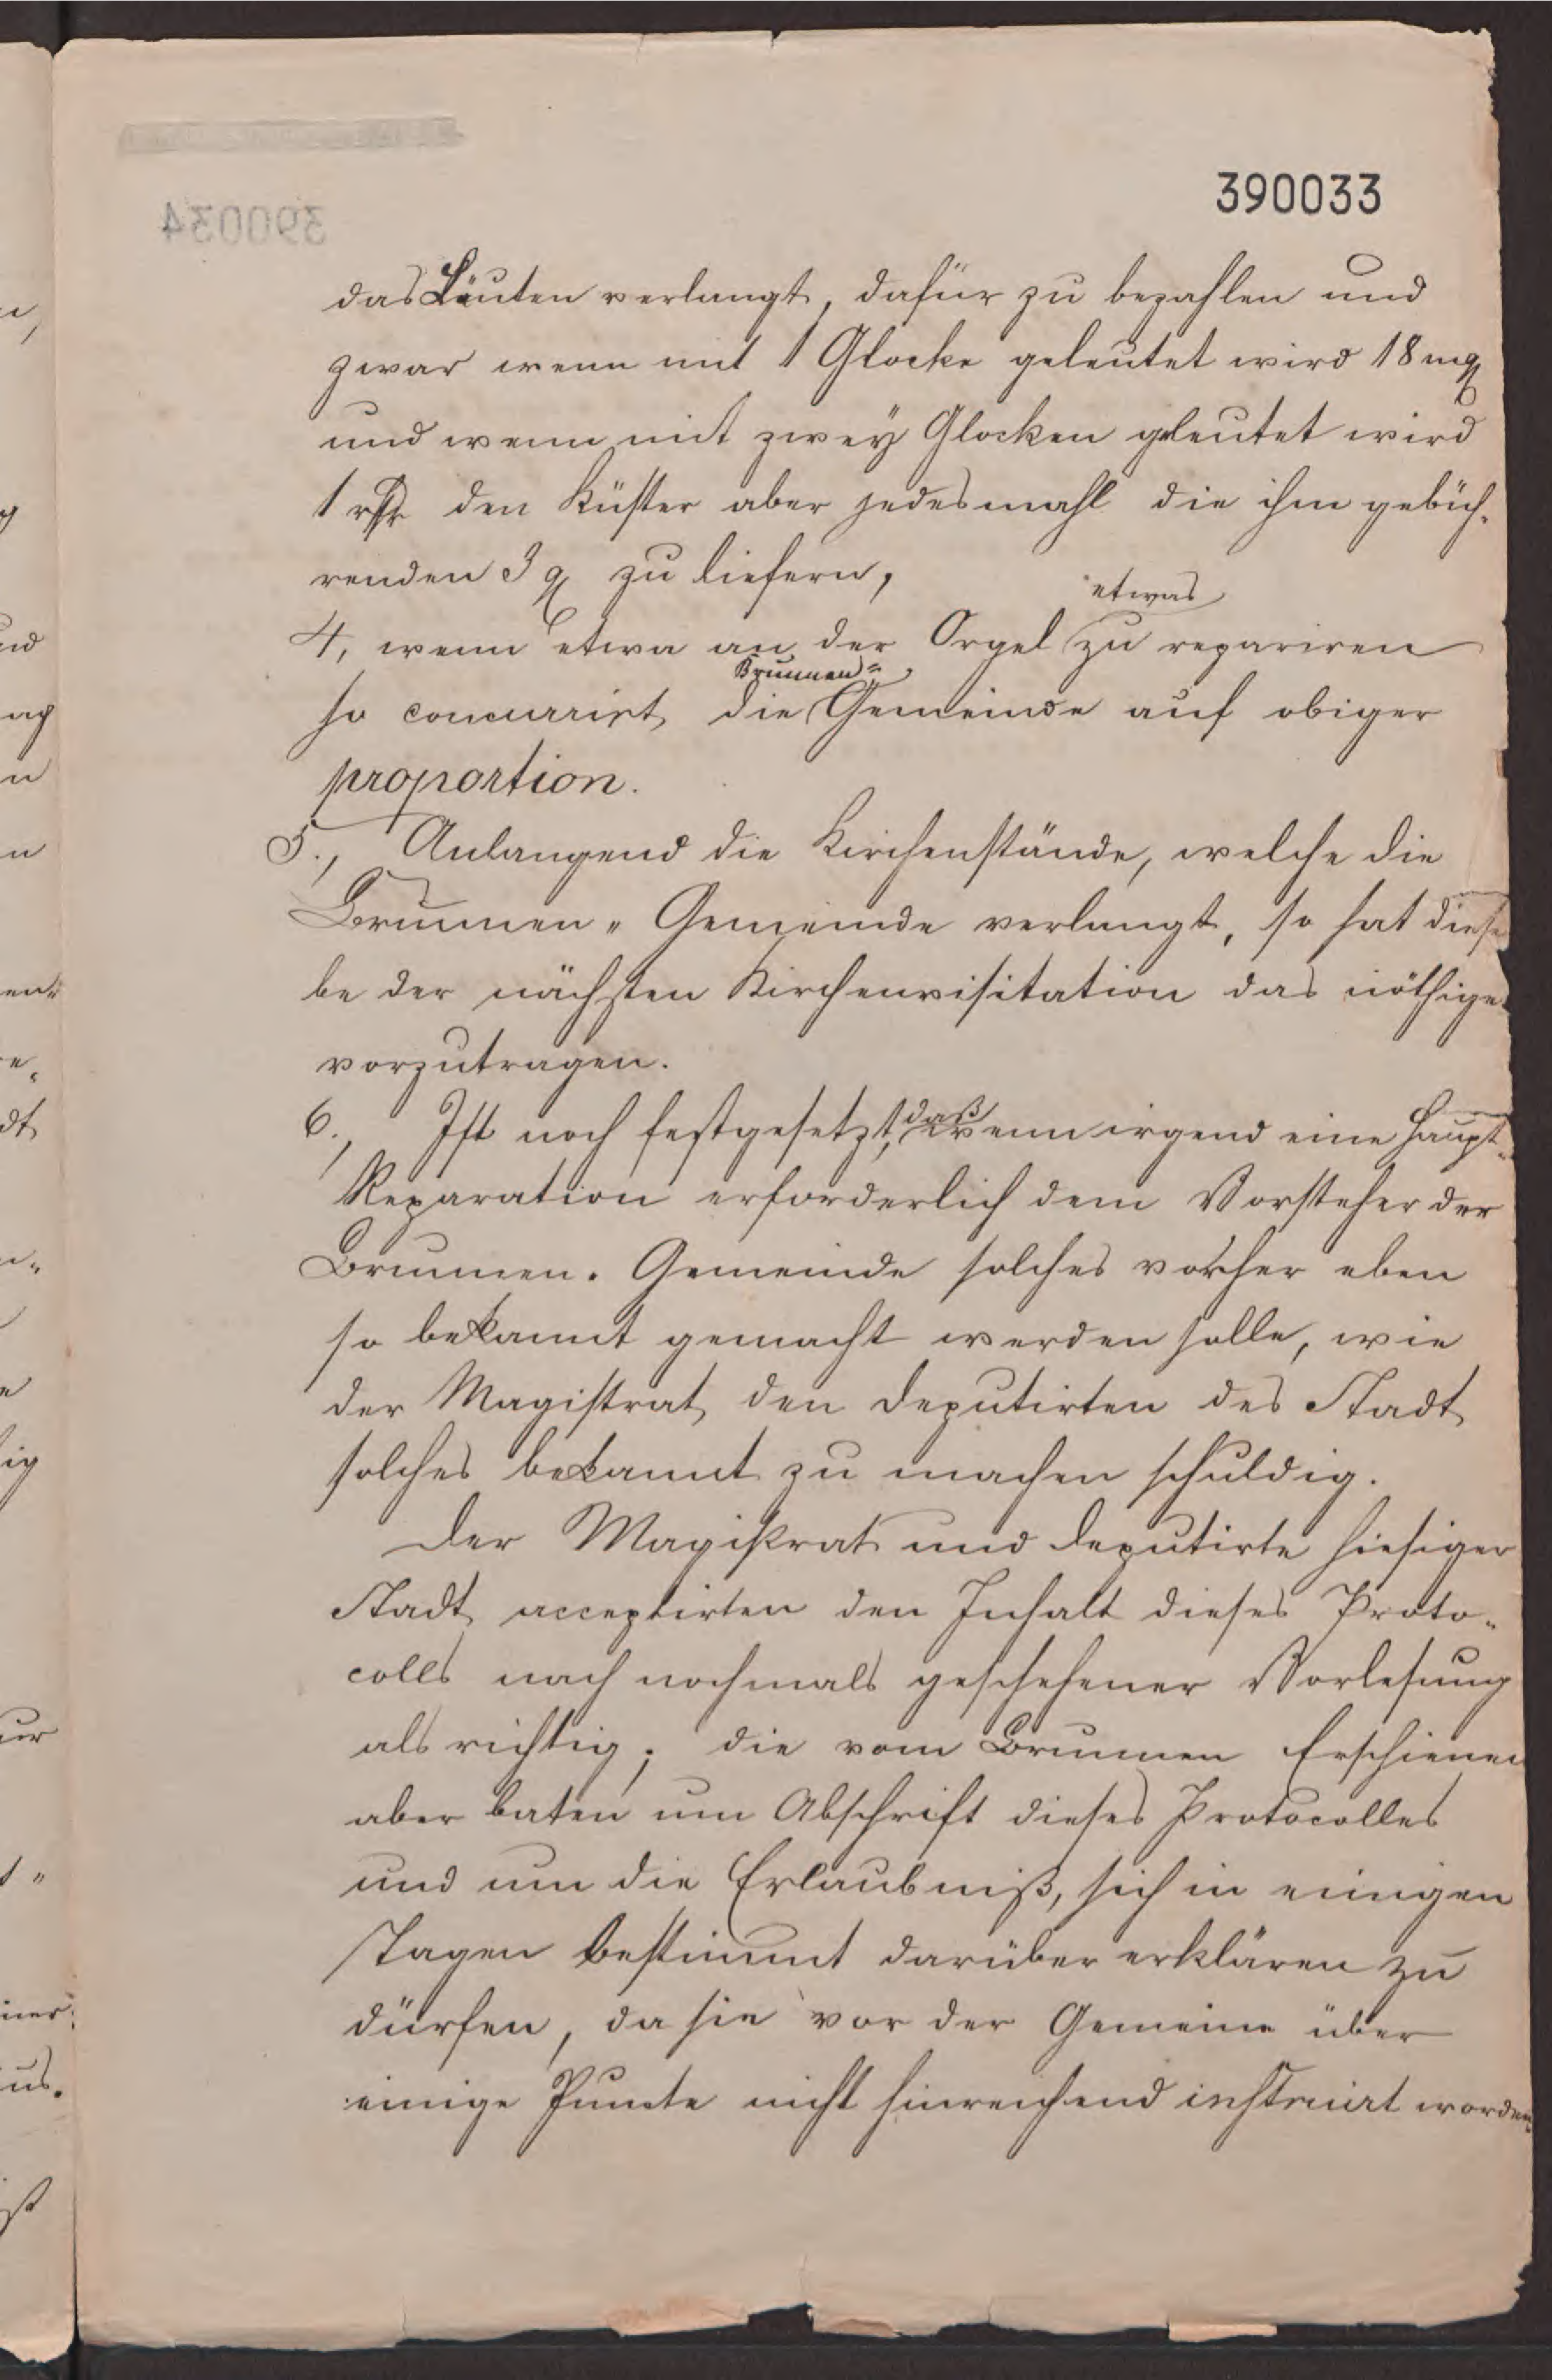 390033
das Läuten verlangt, dafür zu bezahlen und
zwar wenn mit 1 Glocke geleutet wird 18 mg
und wenn mit zwey Glocken geleutet wird
1 rthr den Küster aber jedesmahl die ihm gebüh-
renden 3 g zu liefern,
4, wenn etwa an der Orgel etwas zu repariren
so concurrirt die Brunnen- Gemeinde auf obiger
proportion.
5., Anlangend die Kirchenstände, welche die
Brunnen- Gemeinde verlangt, so hat diese
be der nächsten Kirchenvisitation das nöthige
vorzutragen.
6., Ist noch festgesetzt, daß wenn irgend eine Haupt-
Reparation erforderlich dem Vorsteher der
Brunnen- Gemeinde solches vorher eben
so bekannt gemacht werden solle, wie
der Magistrat den Deputirten des Stadt
solches bekannt zu machen schuldig.
Der Magistrat und Deputirte hiesiger
Stadt acceptirten den Inhalt dieses Proto-
colls nach nochmals geschehener Vorlesung
als richtig; die vom Brunnen Erschienen
aber baten um Abschrift dieses Protocolles
und um die Erlaubniß, sich in einigen
Tagen bestimmt darüber erklären zu
dürfen, da sie vor der Gemeine über
einige Puncte nicht hinreichend instruirt worden